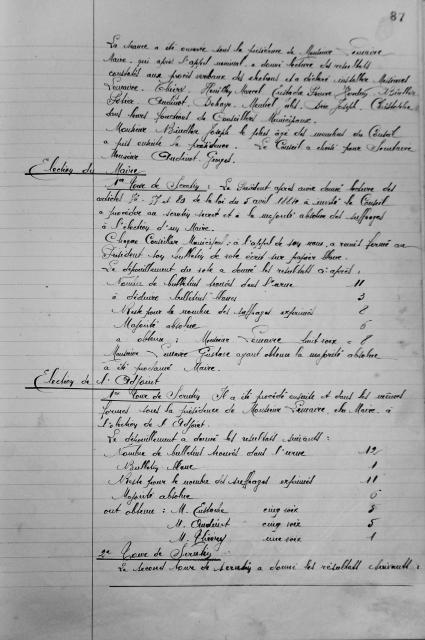 87
La séance a été ouverte sous la présidence de Monsieur Lemaire
Maire, qui après l'appel nominal a donné lecture des résultats
constatés aux procès verbaux des élections et a déclaré installer Messieurs
Lemaire. Thiery. Marcel Eustache
Audint. Joseph. Christophe
dans leurs fonctions de Conseillers Municipaux.
Monsieur Joseph le plus âgé des membres du Conseil
a pris ensuite la présidence. Le Conseil a choisi pour Secrétaire
Monsieur Georges.
Election du Maire
1er Tour de Scrutin : Le Président après avoir donné lecture des
articles 77 et 80 de la loi du 5 avril 1884 a invité le Conseil
à procéder au scrutin secret et à la majorité absolue des suffrages
à l'élection d'un Maire.
Chaque Conseiller Municipal, à l'appel de son nom, a remis fermé au
Président son bulletin de vote écrit sur papier blanc.
Le dépouillement du vote a donné les résultats ci-après :
Nombre de bulletins trouvés dans l'urne 11
à déduire bulletins blancs 3
Reste pour le nombre des suffrages exprimés 8
Majorité absolue
a obtenu : Monsieur Lemaire huit voix : 8
Monsieur Lemaire Gustave ayant obtenu la majorité absolue
a été proclamé Maire.
Election de l'Adjoint
1er Tour de Scrutin Il a été procédé ensuite et dans les mêmes
formes sous la présidence de Monsieur Lemaire, élu Maire à
l'élection de l'Adjoint.
Le dépouillement a donné les résultats suivants :
Nombre de bulletins trouvés dans l'urne 12
Bulletin blanc 1
Reste pour le nombre des suffrages exprimés 11
Majorité absolue 6
ont obtenu : M. Eustache cinq voix 5
M. cinq voix 5
M. Thiery une voix 1
2e Tour de Scrutin
Le second tour de scrutin a donné les résultats suivants :